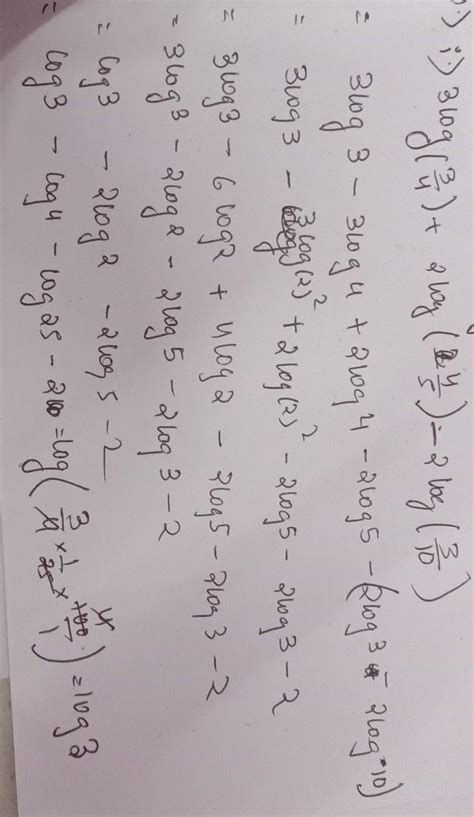 i.) 3log(3/4) + 2log(4/5) - 2log(3/10)
= 3log 3 - 3log 4 + 2log 4 - 2log 5 - (2log 3 - 2log 10)
= 3log 3 - 3log(2)² + 2log(2)² - 2log 5 - 2log 3 - 2
= 3log 3 - 6log 2 + 4log 2 - 2log 5 - 2log 3 - 2
= 3log 3 - 2log 2 - 2log 5 - 2log 3 - 2
= log 3 - 2log 2 - 2log 5 - 2
= log 3 - log 4 - log 25 - 2 = log(3/4 × 1/25 × 100/1) = log 3